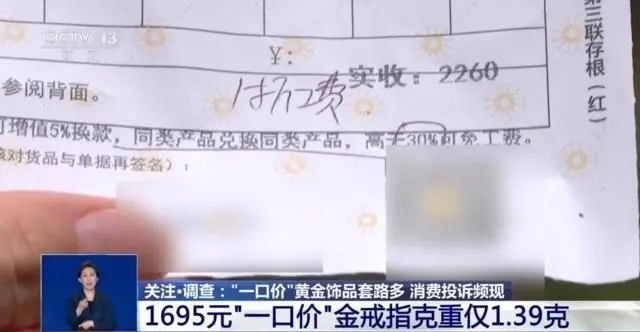 CCTV 13
¥:
第三联存根(红)
参阅背面。
付工费
实收:2260
增值5%换款,同类产品兑换同类产品,高于30%可免工费。
核对货品与单据再签名):
关注·调查:"一口价"黄金饰品套路多 消费投诉频现
1695元"一口价"金戒指克重仅1.39克